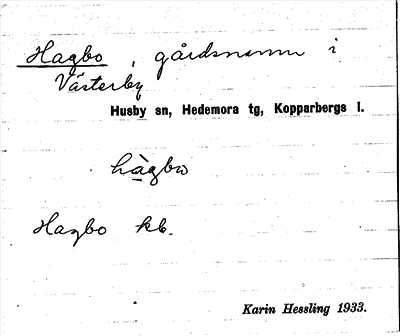 Hagbo, gårdsnamn i
Västerby
Husby sn, Hedemora tg, Kopparbergs l.
hàgbω
Hagbo kb.
Karin Hessling 1933.